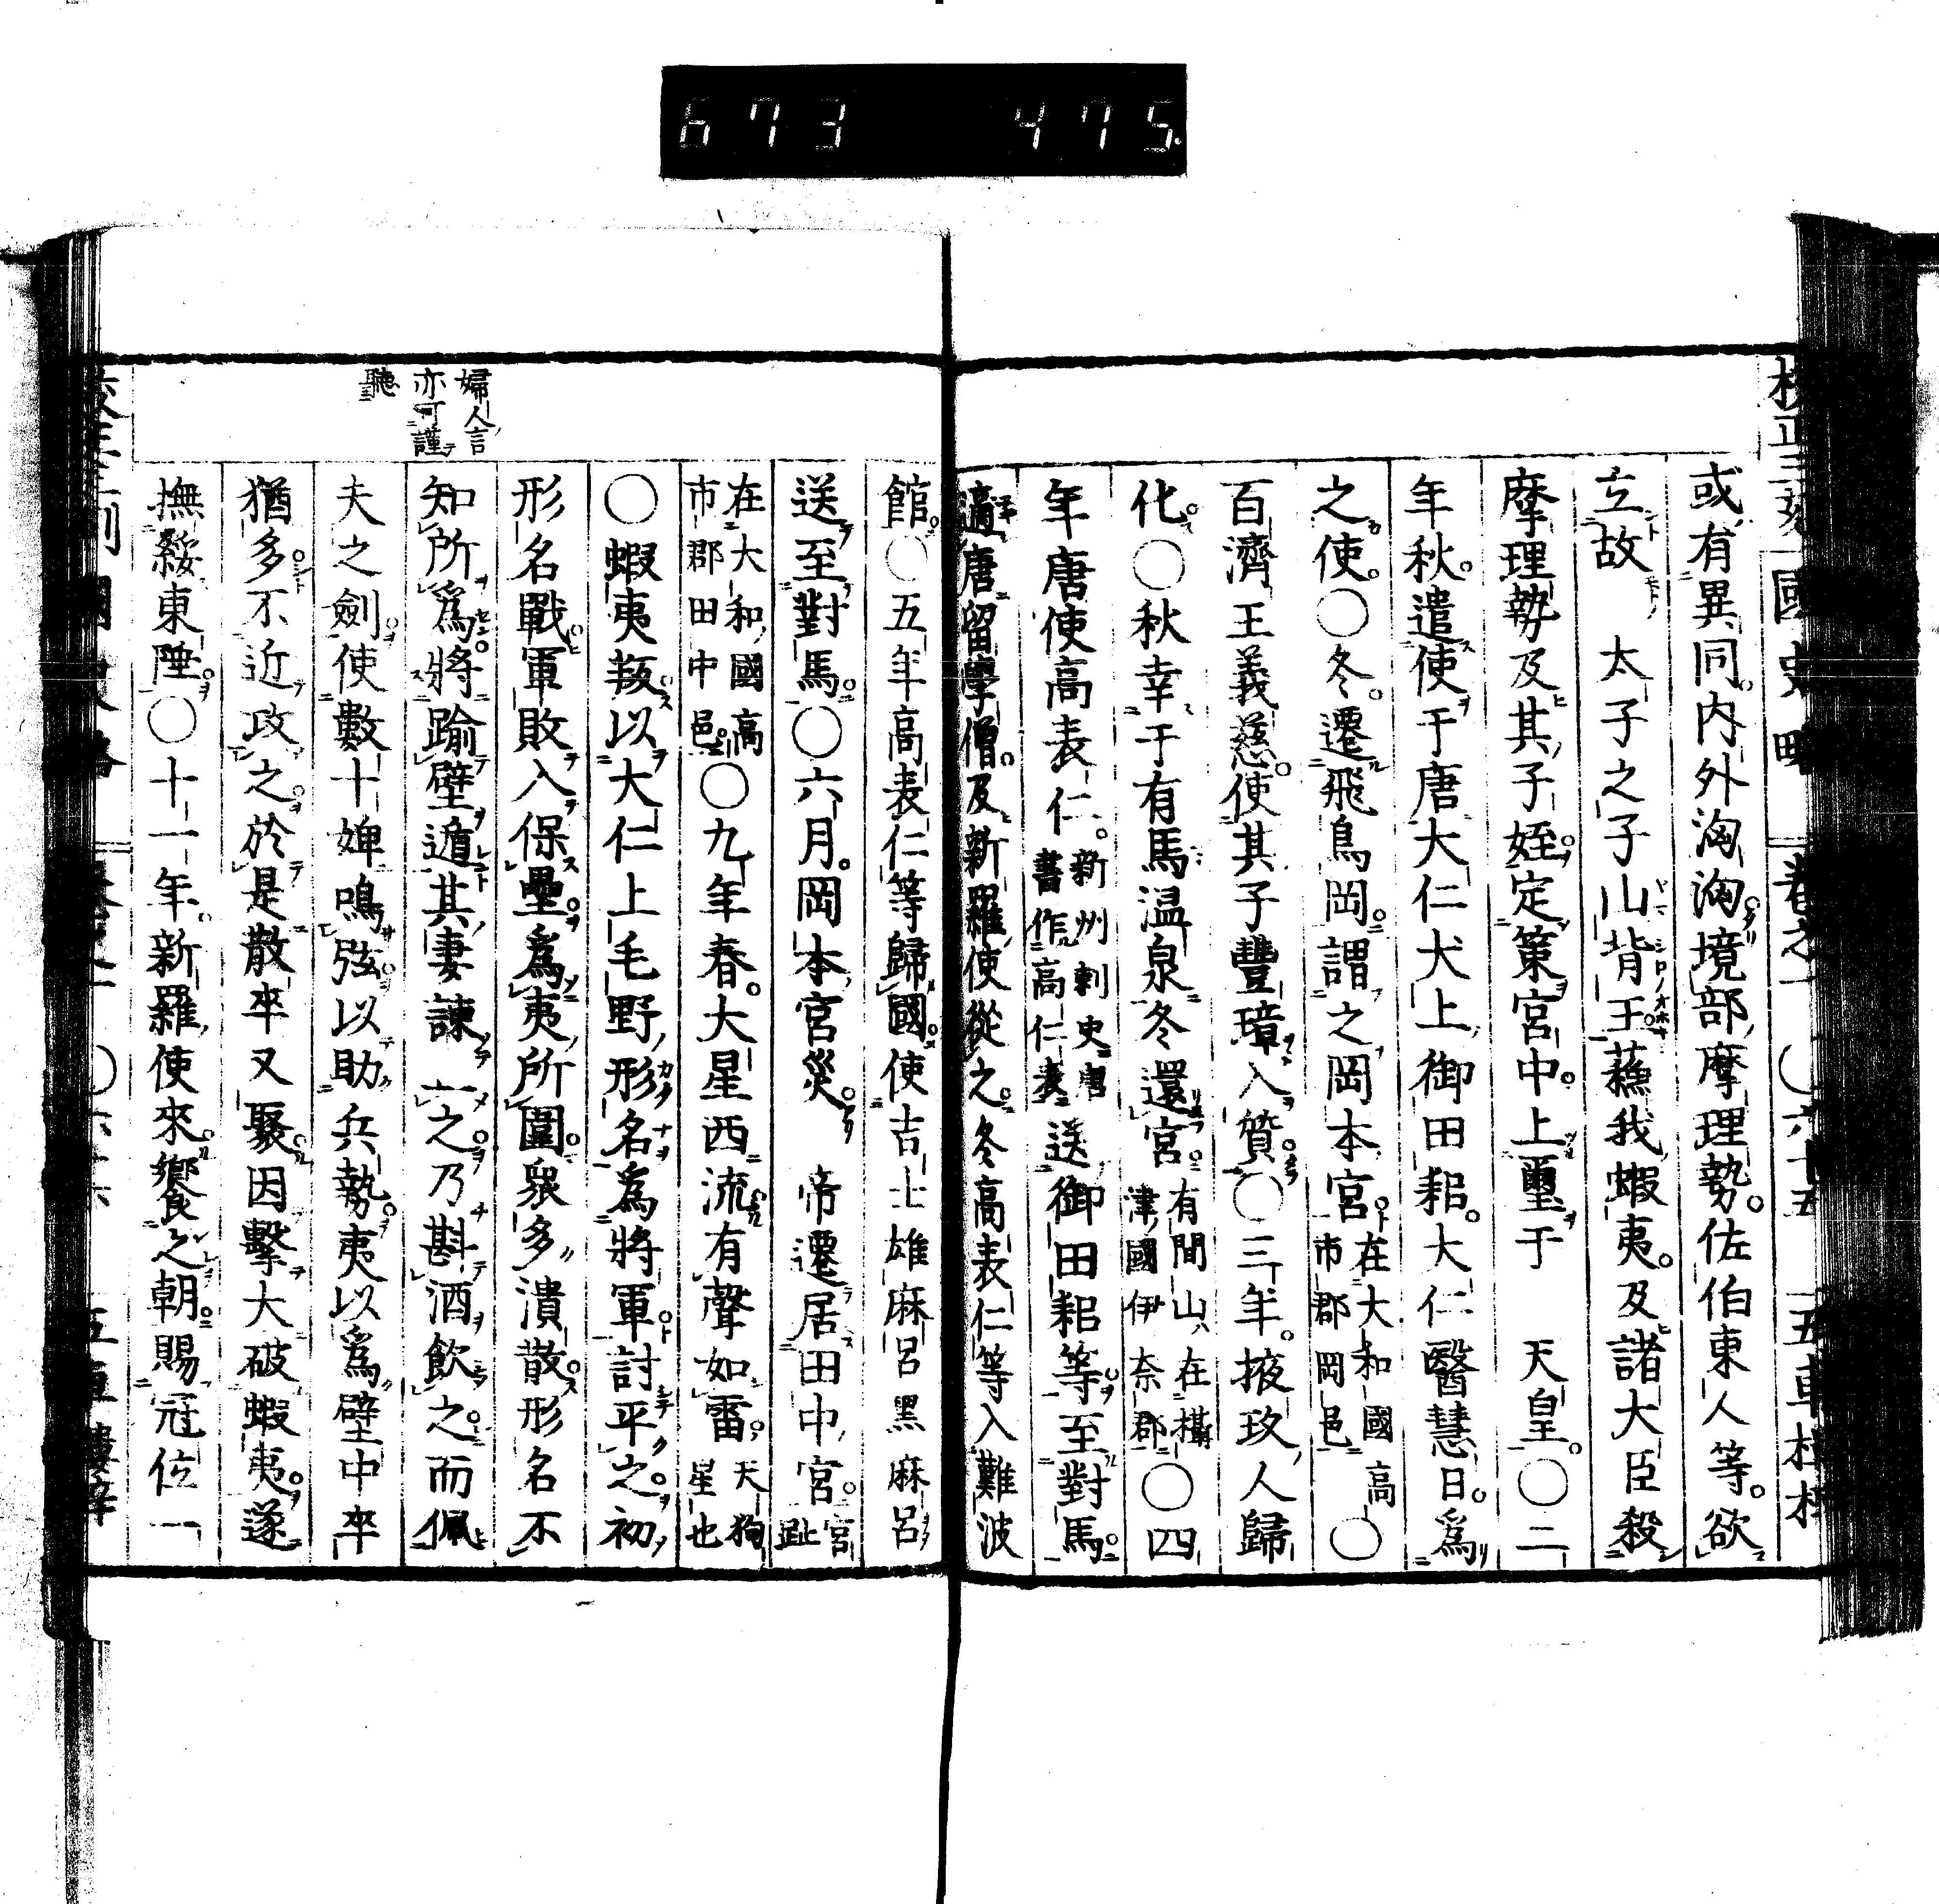 673 475
國史略 卷之一 〇六十五 五車
或有異同。内外洶洶。境部摩理勢。佐伯東人等。欲
立故 太子之子山背王。蘇我蝦夷。及諸大臣殺
摩理勢及其子姪。定策宮中。上璽于 天皇。〇二
年秋。遣使于唐。大仁犬上御田耜。大仁醫慧日。爲
之使。〇冬。遷飛鳥岡。謂之岡本宮。在大和國高市郡岡邑〇
百濟王義慈。使其子豐璋入質。〇三年。掖玖人歸
化。〇秋幸于有馬温泉。冬還宮。有間山在攝津國伊奈郡〇四
年唐使高表仁。新州刺史唐書作高仁表送御田耜等。至對馬。
適唐留學僧。及新羅使從之。冬高表仁等入難波
館。〇五年高表仁等歸國。使吉士雄麻呂黑麻呂
送至對馬。〇六月。岡本宮災。 帝遷居田中宮。宮趾
在大和國高市郡田中邑。〇九年春。大星西流有聲如雷。天狗星也
〇蝦夷叛。以大仁上毛野形名爲將軍。討平之。初
形名戰軍敗。入保壘。爲夷所圍。衆多潰散。形名不
知所爲。將踰壁遁。其妻諫止之。乃斟酒飲之。而佩
夫之劍。使數十婢鳴弦。以助兵勢。夷以爲壁中卒
猶多。不近攻之。於是散卒又聚。因擊大破蝦夷。遂
撫綏東陲。〇十一年。新羅使來。饗之朝。賜冠位一
婦人言
亦可謹
聽